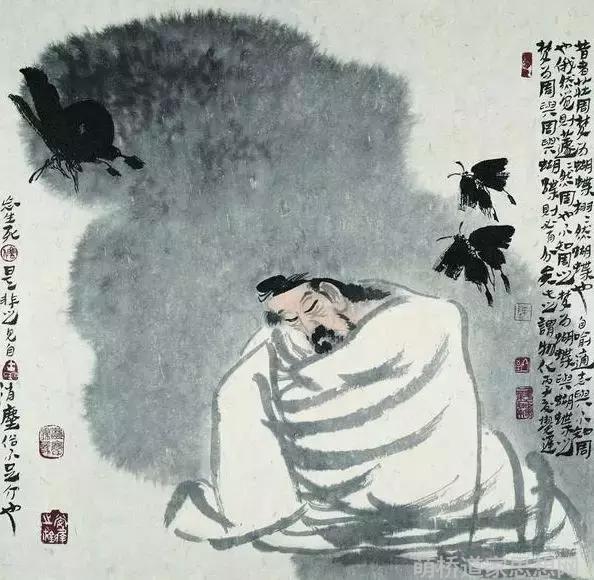 昔者莊周夢為蝴蝶栩々然蝴蝶也自喻適志與不知周
也俄然覺則蘧々然周也不知周之夢為蝴蝶與蝴蝶之
夢為周與周與蝴蝶則必有分矣此之謂物化
忘生死是非之見自消塵俗不足介也
萌桥道家思想网